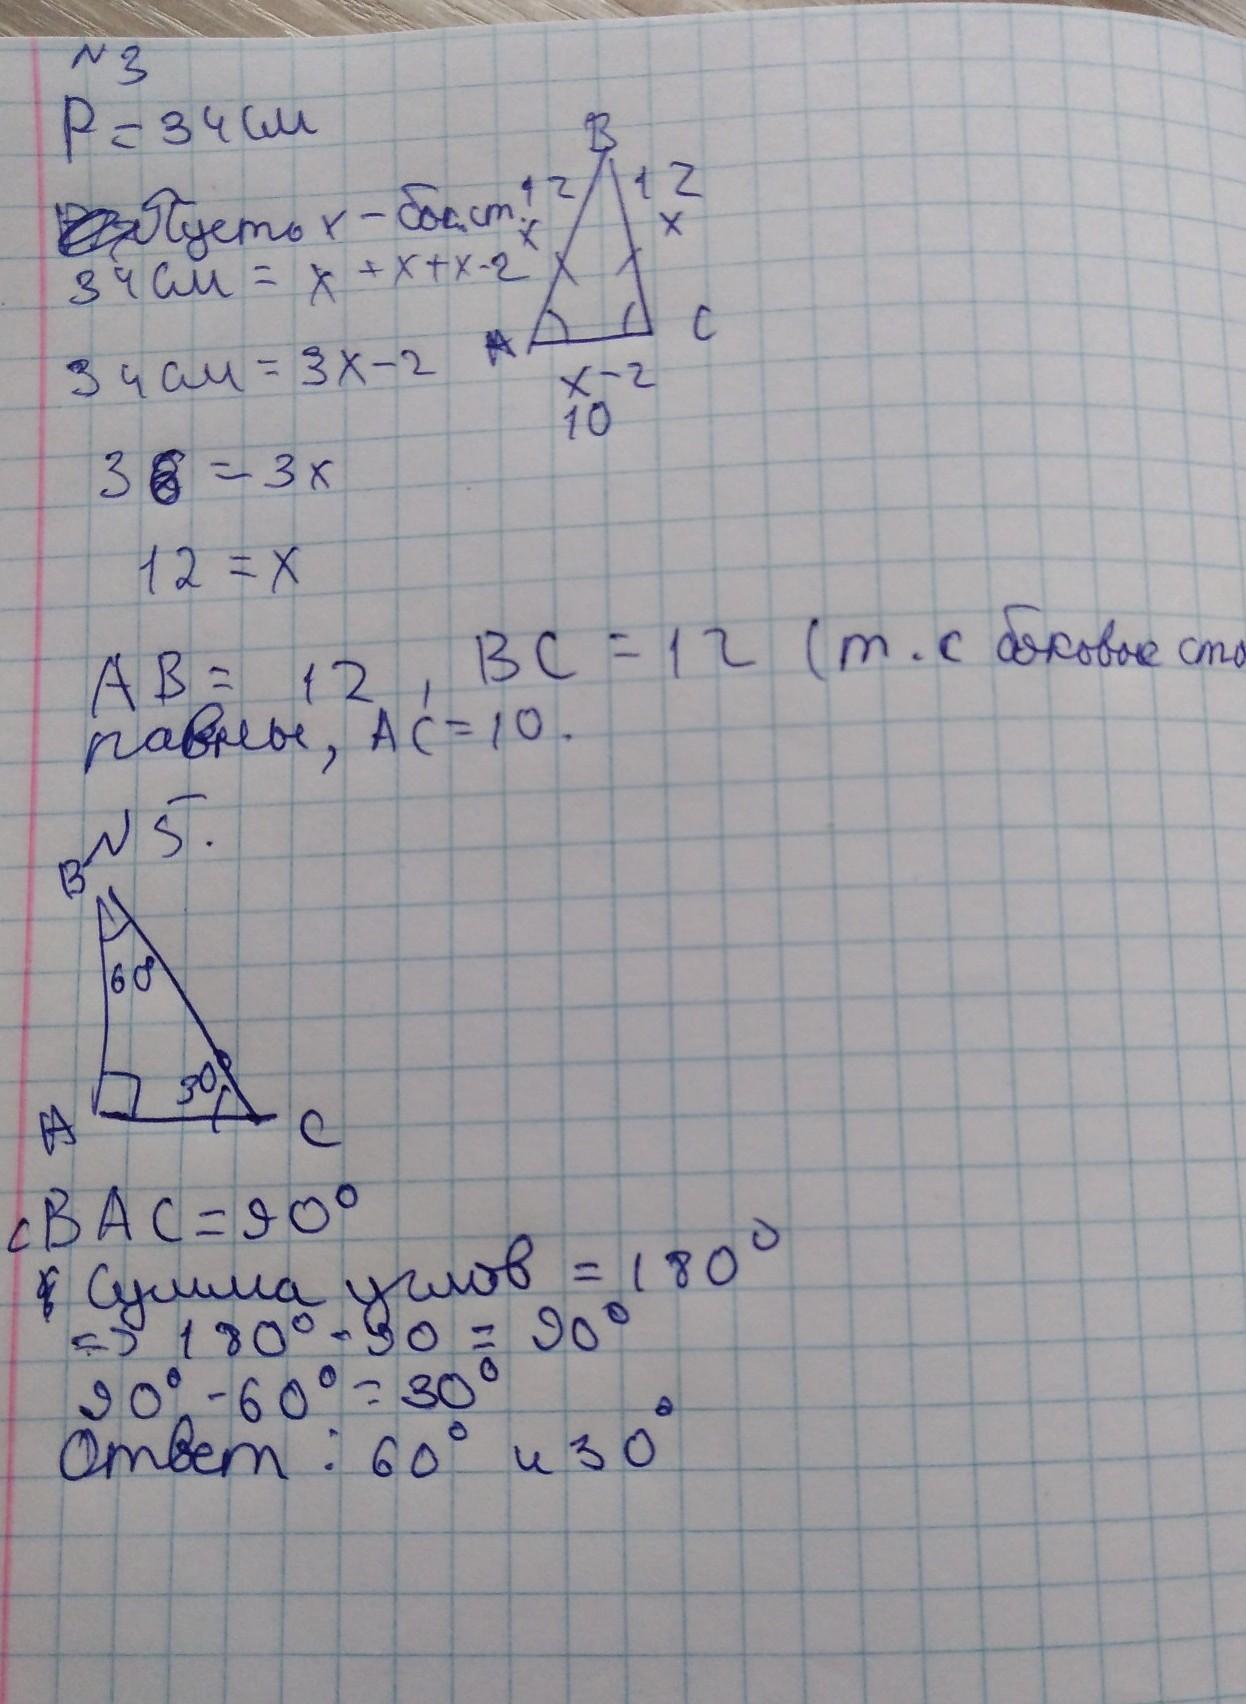 N 3
P = 34 см
Пусть x - бок.ст.
34 см = x + x + x - 2
34 см = 3x - 2
36 = 3x
12 = x
B
12
12
x
x
A
C
x - 2
10
AB = 12, BC = 12 (т.с боковые сто
равны, AC = 10.
N 5.
B
60°
30°
A
C
<BAC = 90°
Сумма углов = 180°
=> 180° - 90 = 90°
90° - 60° = 30°
Ответ: 60° и 30°